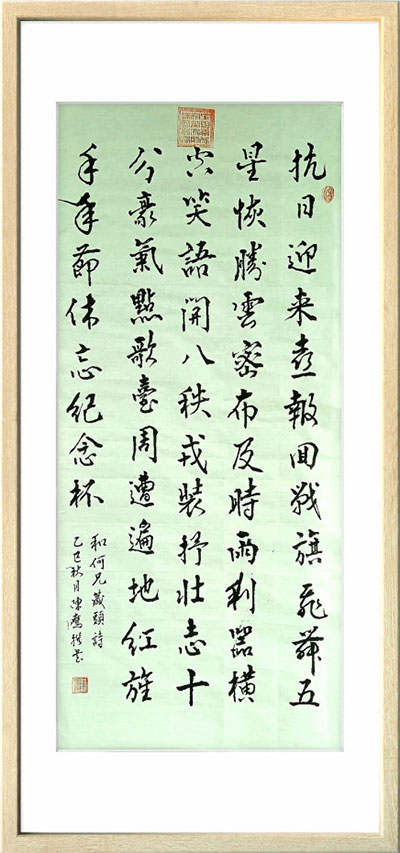 抗日迎来喜報回戰旗飛舞五
星恢勝雲密布及時雨利器橫
空笑語開八秩戎裝抒壯志十
分豪氣點歌臺周遭遍地红旌
手年節休忘纪念杯
和何兄藏頭詩
乙巳秋月陳